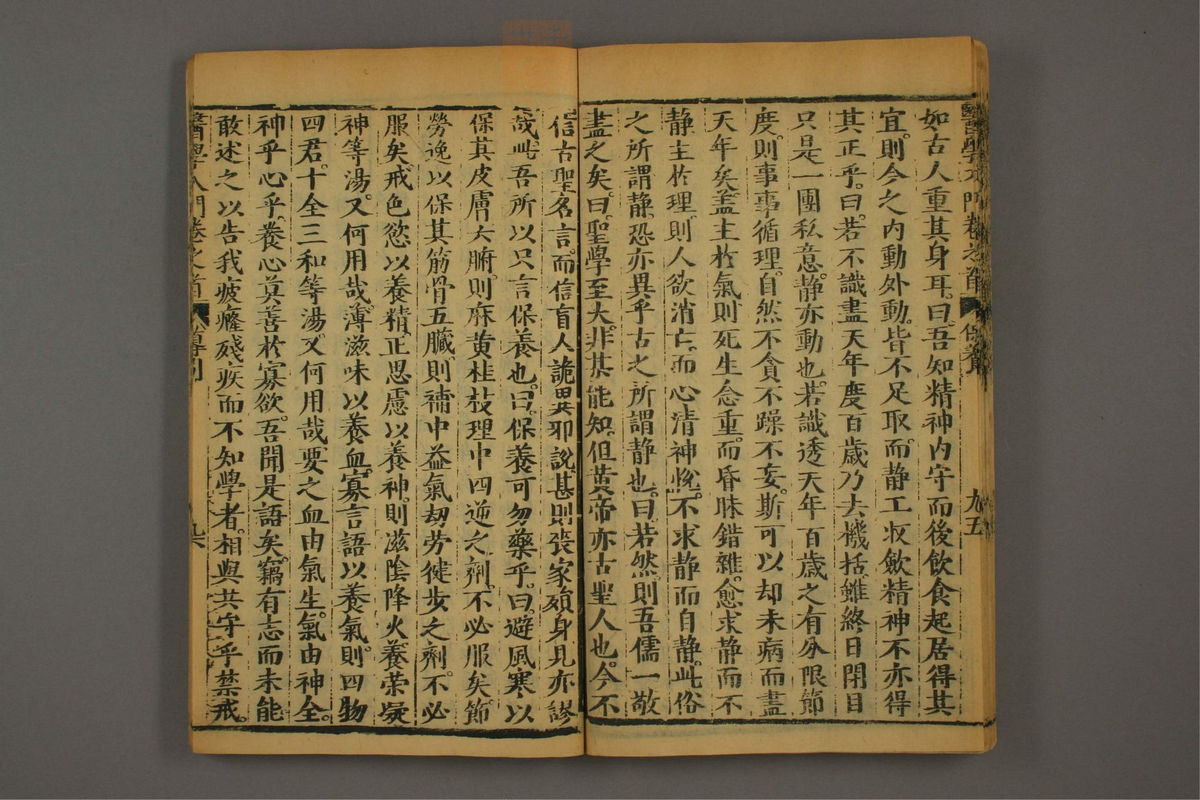 醫學入門卷之首 保養 九五
如古人重其身耳。曰吾知精神內守而後飲食起居得其
宜。則今之內動外動。皆不足取。而静工收歛精神。不亦得
其正乎。曰。若不識盡天年度百歲乃去。機括雖終日閉目
只是一團私意。静亦動也。若識透天年百歲之有分限節
度。則事事循理。自然不貪不躁不妄。斯可以却未病而盡
天年矣。盖主於氣則死生念重。而昏昧錯雜。愈求静而不
静主於理。則人欲消亡。而心清神悅。不求静而自静。此俗
之所謂静。恐亦異乎古之所謂静也。曰。若然。則吾儒一敬
盡之矣。曰。聖學至大。非某能知。但黄帝亦古聖人也。今不
信古聖名言。而信盲人詭異邪說。甚則喪家殞身見亦謬
哉。此吾所以只言保養也。曰。保養可勿藥乎。曰。避風寒以
保其皮膚六腑。則麻黄桂枝理中四逆之劑。不必服矣。節
勞逸以保其筋骨五臟。則補中益氣劫勞健步之劑。不必
服矣。戒色慾以養精。正思慮以養神。則滋陰降火養荣凝
神等湯。又何用哉。薄滋味以養血。寡言語以養氣。則。四物
四君。十全三和等湯又何用哉。要之血由氣生。氣由神全。
神乎心乎。養心莫善於寡欲。吾聞是語矣。竊有志而未能
敢述之以告我疲癃殘疾而不知學者。相與共守乎禁戒。
醫學入門卷之首